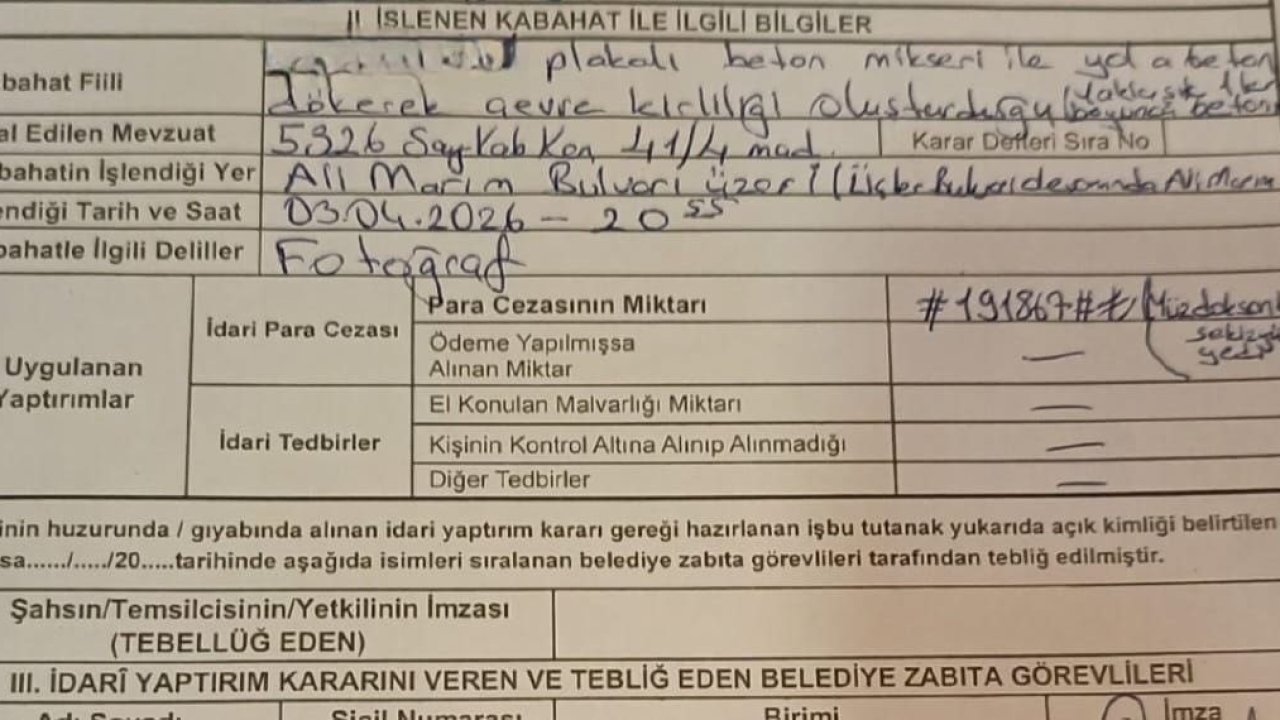 II. İŞLENEN KABAHAT İLE İLGİLİ BİLGİLER
bahat Fiili
plakalı beton mikseri ile yola beton
dökerek çevre kirliliği oluşturduğu (yaklaşık 1 km
boyunca beton
al Edilen Mevzuat 5326 Say Kab Kan 41/4 mad. Karar Defteri Sıra No
bahatin İşlendiği Yer Ali Marım Bulvarı üzeri
endiği Tarih ve Saat 03.04.2026 - 20 55
bahatle İlgili Deliller Fotoğraf
Uygulanan
Yaptırımlar
İdari Para Cezası
Para Cezasının Miktarı #191867#₺ (Yüzdoksan
sekizyüz
yedi
Ödeme Yapılmışsa
Alınan Miktar —
İdari Tedbirler
El Konulan Malvarlığı Miktarı —
Kişinin Kontrol Altına Alınıp Alınmadığı —
Diğer Tedbirler —
inin huzurunda / gıyabında alınan idari yaptırım kararı gereği hazırlanan işbu tutanak yukarıda açık kimliği belirtilen
sa....../...../20.....tarihinde aşağıda isimleri sıralanan belediye zabıta görevlileri tarafından tebliğ edilmiştir.
Şahsın/Temsilcisinin/Yetkilinin İmzası
(TEBELLÜĞ EDEN)
III. İDARÎ YAPTIRIM KARARINI VEREN VE TEBLİĞ EDEN BELEDİYE ZABITA GÖREVLİLERİ
Adı Soyadı Sicil Numarası Birimi İmza